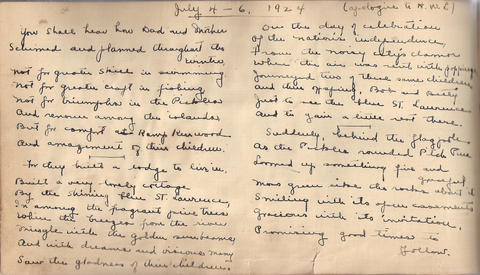 July 4-6, 1924
(apologies to H.W.L.)
You shall hear how Dad and Mother
Schemed and planned throughout the
winter,
Not for greater skill in swimming
Not for greater craft in fishing
Not for triumphs in the
And renown among the islands
But for comfort at Kamp Kenwood
And amazement of their children.
For they built a lodge to live in,
Built a very lovely cottage
By the shining blue St. Lawrence,
In among the fragrant pine trees
Where the breezes from the river
Mingle with the golden sunbeams,
And with dreams and visions many
Saw the gladness of their children.
On the day of celebration
Of the nation's independence,
From the noisy city's clamor
When the air was rent with popping
Journeyed two of these same children
and their offspring, Bob and Betty
Just to see the blue St. Lawrence
And to gain a little rest there.
Suddenly, behind the flagpole
As the rounded
Loomed up something fine and
graceful
Moss green like the rocks about it
Smiling with its open casements
Gracious with its invitation,
Promising good times to
follow.